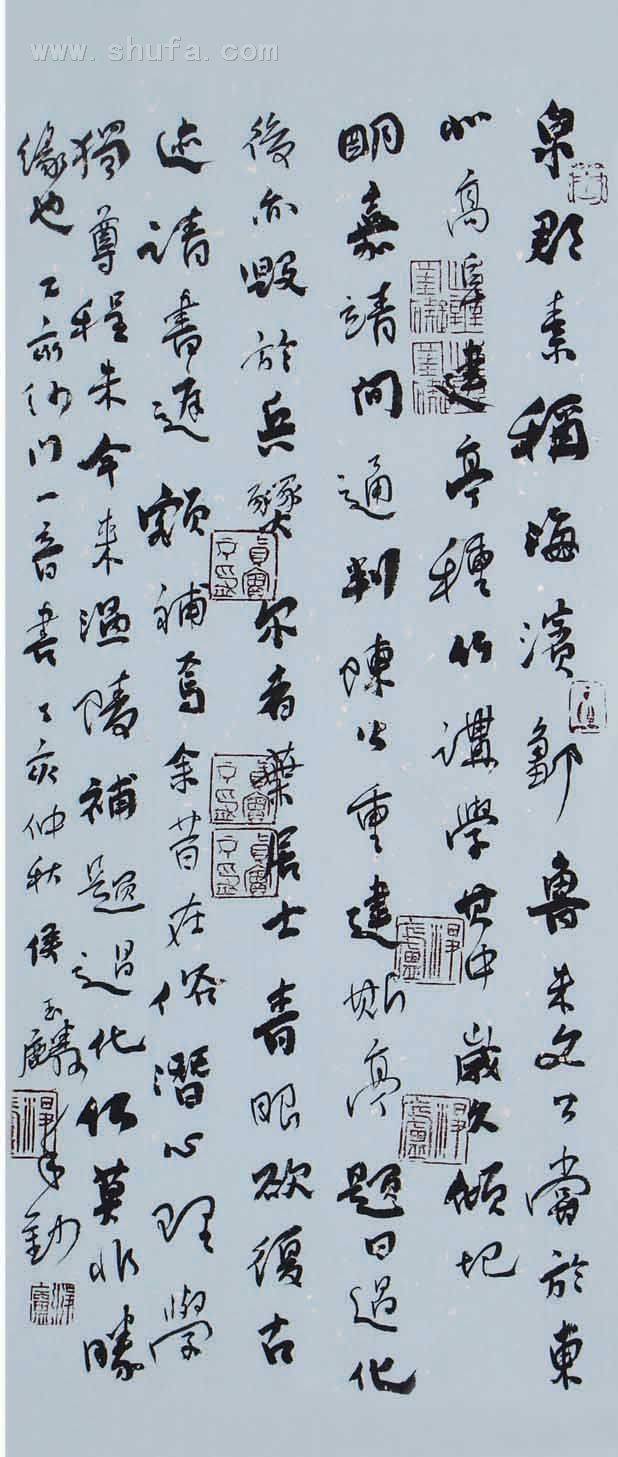 www.shufa.com
泉郡素稱海濱鄒魯朱文公嘗於東
北高阜建亭種竹講學其中歲久傾圮
明嘉靖間通判陳公重建斯亭題曰過化
後亦毀於兵燹尔者葉居士青眼欲復古
迹請書額補焉余昔在俗潛心理學
獨尊程朱今來溫陵補題過化何莫非勝
緣也乙亥沙門一音書乙亥仲秋侯玉麟